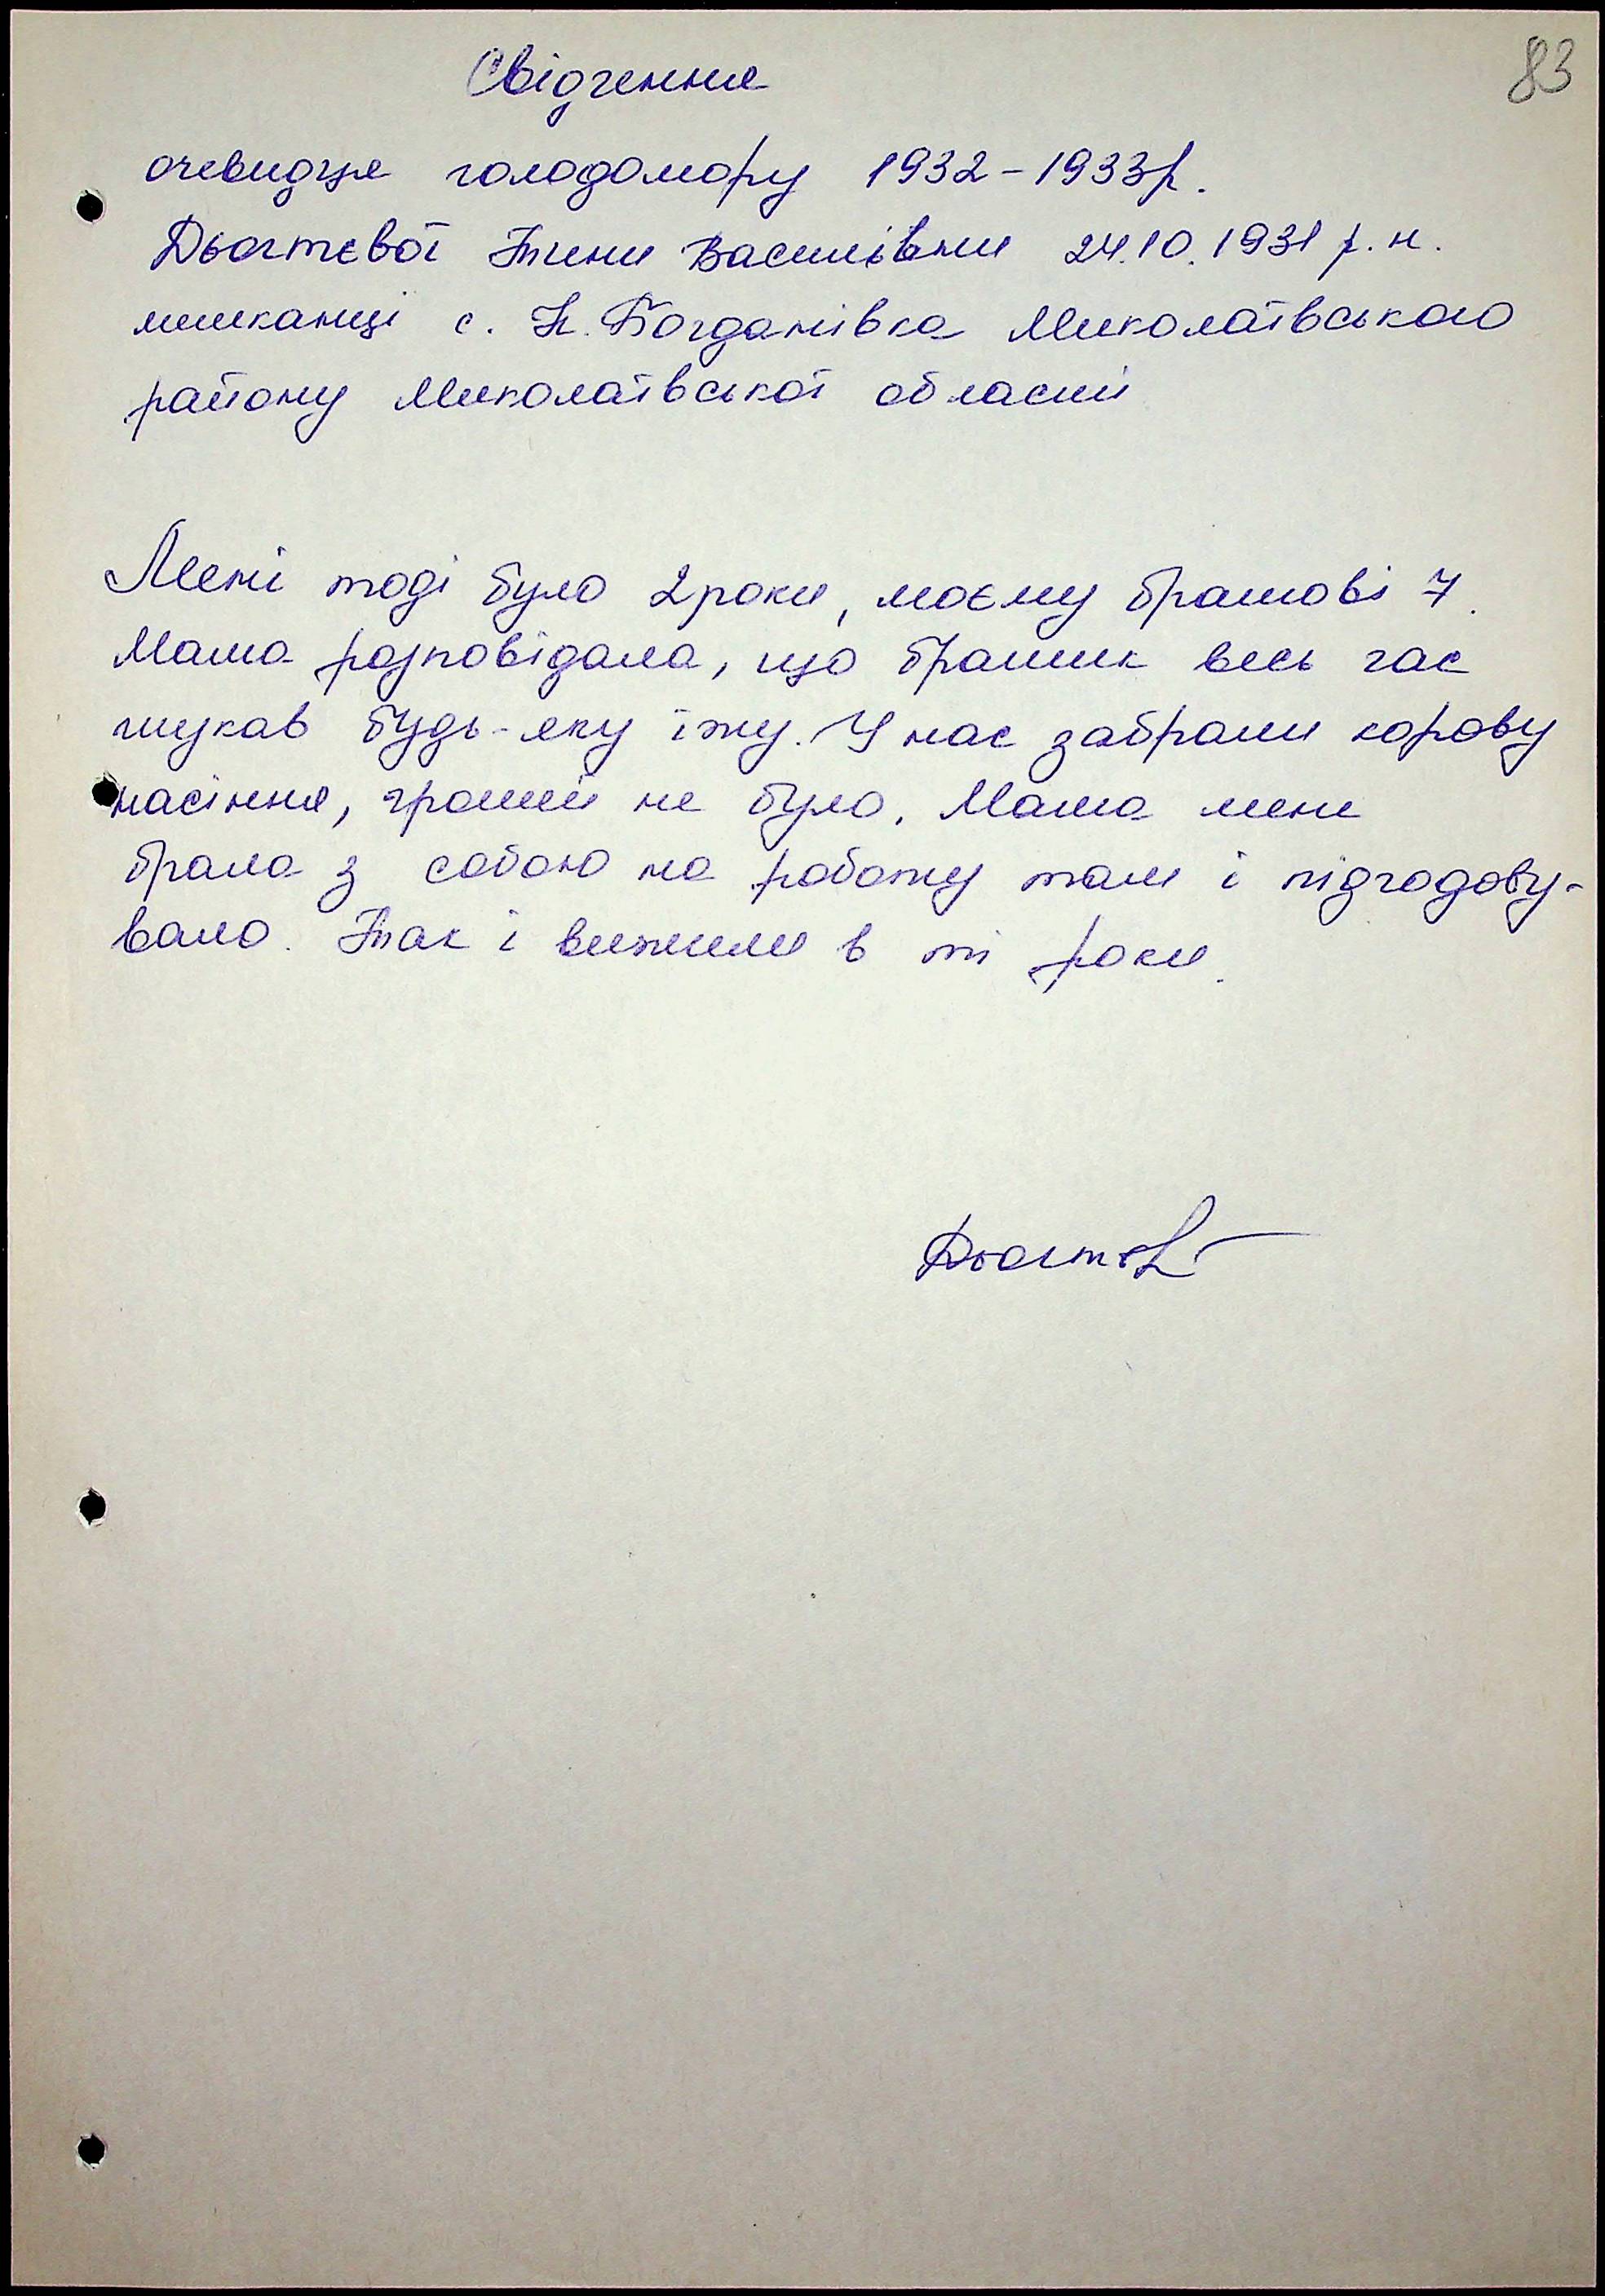 83
Свідчення
очевидця голодомору 1932-1933р.
Дьогтєвої Тини Василівни 24.10.1931 р.н.
мешканці с. К. Богданівка Миколаївського
району Миколаївської області
Мені тоді було 2 роки, моєму братові 7.
Мама розповідала, що братик весь час
шукав будь-яку їжу. У нас забрали корову
насіння, грошей не було. Мама мене
брала з собою на роботу там і підгодову-
вала. Так і вижили в ті роки.